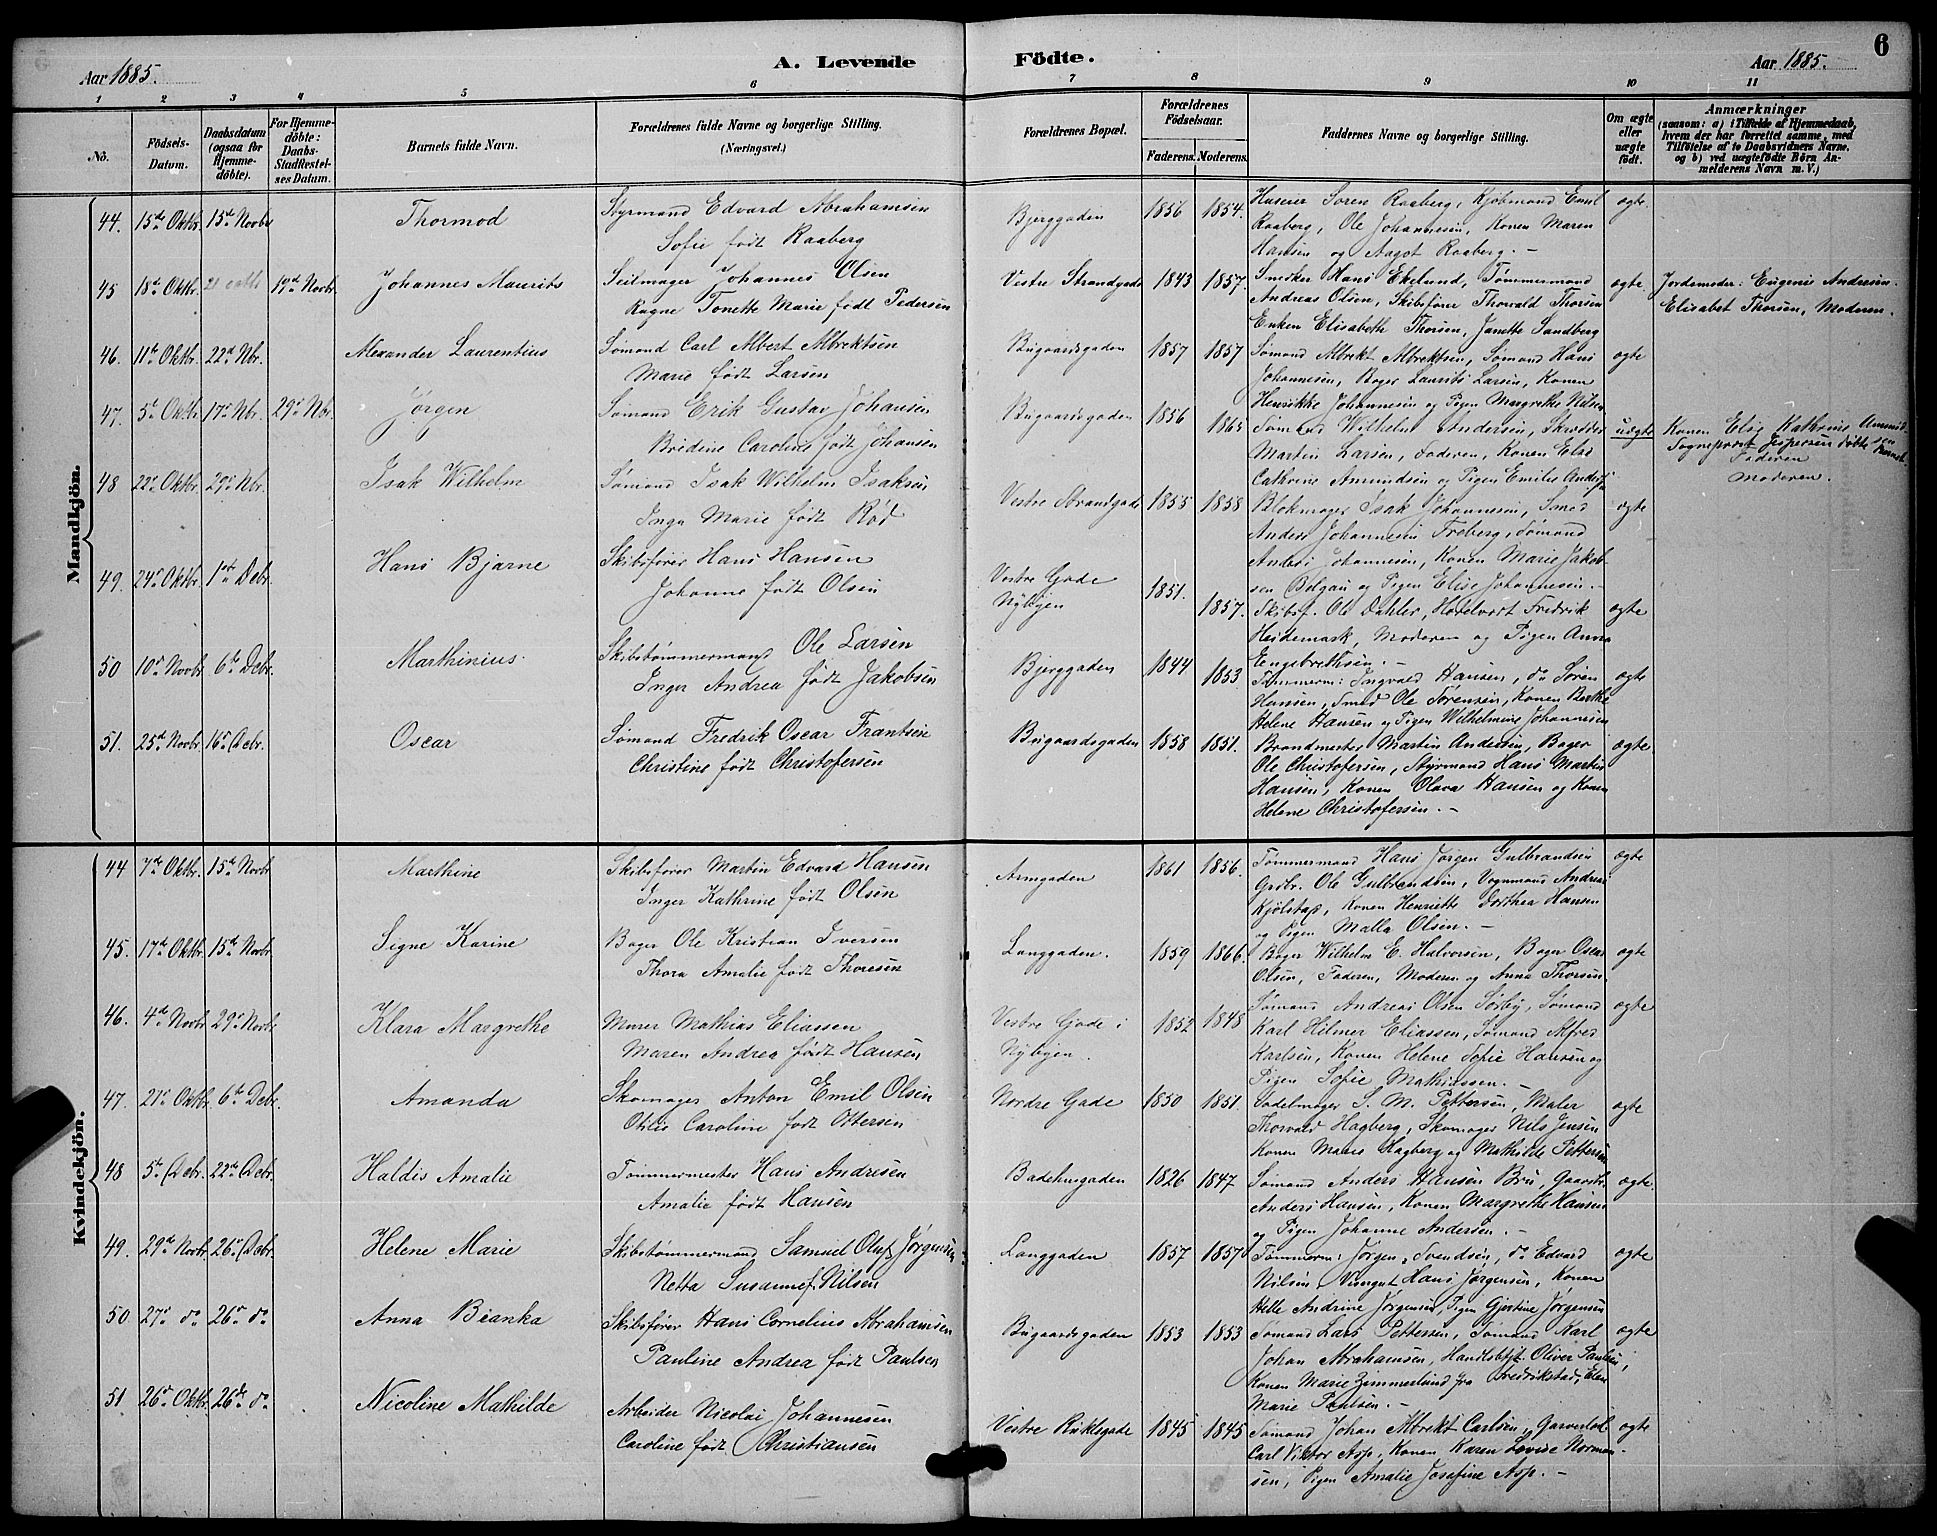 Aar 1885. A. Levende Födte. Aar 1885. 6
1 2 3 4 5 6 7 8 9 10 11
Nô. Födsels-Datum. Daabsdatum (ogsaa for Hjemme-döbte). For Hjemme-döbte: Daabs-Stadfæstel-ses Datum. Barnets fulde Navn. Forældrenes fulde Navne og borgerlige Stilling. (Næringsvei.) Forældrenes Bopæl. Forældrenes Födselsaar. Faderens. Moderens. Faddernes Navne og borgerlige Stilling. Om ægte eller uægte födt. Anmærkninger (saasom: a) i Tilfælde af Hjemmedaab, hvem der har forrettet samme, med Tilföielse af to Daabsvidners Navne, og b) ved uægtefödte Börn An-melderens Navn m. V.)
Mandkjön.
44. 15de Oktbr. 15de Novbr Thormod Styrmand Edvard Abrahamsen Bjerggaden 1856 1854. Huseier Søren Raaberg, Kjøbmand Emil ægte.
Sofie født Raaberg Raaberg, Ole Johannesen, Konen Maren
Hansen og Aagot Raaberg. –
45 18de Oktbr. 19de Novbr. Johannes Maurits Seilmager Johannes Olsen Vestre Strandgade 1843 1857. Smeker Hans Ekelund, Tømmermand ægte. Jordemoder: Eugenie Andersen.
Ragne Tonette Marie født Pedersen Andreas Olsen, Skibsfører Thorvald Thorsen Elisabet Thorsen, Moderen.
Enken Elisabeth Thorsen, Janette Sandberg
46. 11te Oktbr. 22d Nbr. Alexander Laurentius Sømand Carl Albert Albrektsen Bugaardsgaden 1857 1857 Sømand Albrekt Albrektsen, Sømand Hans ægte
Marie født Larsen Johannesen, Bager Laurits Larsen, Konen
Henrikke Johannesen og Pigen Margrethe Nilsen
47. 5te Oktbr. 17de Nbr. 29de Nbr. Jørgen Sømand Erik Gustav Johansen Bugaardsgaden 1856 1865 Sømand Wilhelm Andersen, Skrædder uægte Konen Elise Kathrine Amundsen
Bredine Caroline født Johansen Martin Larsen, Faderen, Konen Else Sogneprest Jespersen døbte Barnet.
Cathrine Amundsen og Pigen Emilie Andersen Faderen
Moderen.
48 22de Oktbr. 29de Nbr. Isak Wilhelm Sømand Isak Wilhelm Isaksen Vestre Strandgade 1855 1858 Blokmager Isak Johannesen, Smed ægte
Inga Marie født Rød Anders Johannesen Froberg, Sømand
Anders Johannesen, Konen Marie Jakob-
sen og Pigen Elise Johannesen. –
49. 24de Oktbr. 1ste Debr. Hans Bjarne Skibsfører Hans Hansen Vestre Gade 1851. 1857. Skibsf. Ole Dahler, Hotelvert Fredrik ægte
Johanne født Olsen Nybyen Heidemark, Moderen og Pigen Anna
Engebrethsen. –
50 10de Novbr. 6te Debr. Marthinius. Skibstømmermand Ole Larsen Bjerggaden 1844 1853 Tømmerm: Ingvald Hansen, do Søren ægte
Inger Andrea født Jakobsen Hansen, Smed Ole Sørensen, Konen Berthe
Helene Hansen og Pigen Wilhelmine Johannesen
51. 25de Novbr. 16de Debr. Oscar Sømand Fredrik Oscar Frantsen Bugaardsgaden 1858 1851. Brandmester Martin Andersen, Bager ægte.
Christine født Christofersen Ole Christofersen, Styrmand Hans Martin
Hansen, Konen Olava Hansen og Konen
Helene Christofersen. –
Kvindekjön.
44 7de Oktbr. 15de Novbr. Marthine Skibsfører Martin Edvard Hansen Armgaden 1861 1856. Tømmermand Hans Jørgen Gulbrandsen ægte
Inger Kathrine født Olsen Grdbr. Ole Gulbrandsen, Vognmand Andreas
Kjølstad, Konen Henriette Dorthea Hansen
og Pigen Malla Olsen. –
45. 17de Oktbr. 15de Novbr. Signe Karine Bager Ole Kristian Iversen Langgaden. 1859 1866. Bager Wilhelm E. Halvorsen, Bager Oscar ægte
Thora Amalie født Thoresen Olsen, Faderen, Moderen og Anna Thorsen.
46. 4de Novbr. 29de Novbr. Klara Margrethe Murer Mathias Eliassen Vestre Gade i 1852 1848 Sømand Andreas Olsen Sørby, Sømand ægte
Maren Andrea født Hansen Nybyen. Karl Hilmer Eliassen, Sømand Alfred
Karlsen, Konen Helene Sofie Hansen og
Pigen Sofie Mathiassen. –
47. 21de Oktbr. 6te Debr. Amanda Skomager Anton Emil Olsen Nordre Gade 1850 1851. Sadelmager S. M. Pettersen, Maler ægte
Otilie Caroline født Ottersen Thorvald Hagberg, Skomager Nils Jensen
Konen Maren Hagberg og Mathilde Pettersen
48 5te Debr. 22de Debr. Haldis Amalie Tømmermester Hans Andresen Badehusgaden 1826 1847 Sømand Anders Hansen Bru, Gaardbr. ægte.
Amalie født Hansen Anders Hansen, Konen Margrethe Hansen
og Pigen Johanne Andersen. –
49. 29de Novbr. 26de Debr. Helene Marie Skibstømmermand Samuel Oluf Jørgensen Langgaden 1857 1857 Tømmerm: Jørgen Svendsen, do Edvard ægte
Netta Susanne f. Nilsen Nilsen, Hans Jørgensen, Konen
Helle Andrine Jørgensen, Pigen Gjertine Jørgensen
50 27de do 26de do Anna Bianka Skibsfører Hans Cornelius Abrahamsen Bugaardsgaden 1853 1853 Sømand Lars Pettersen, Sømand Karl ægte
Pauline Andrea født Paulsen Johan Abrahamsen, Handelsbetj. Oliver Paulsen,
Konen Marie Zimmerlund fra Fredrikstad, Elen
Marie Paulsen. –
51 26de Oktbr. 26de do Nicoline Mathilde Arbeider Nicolai Johannesen Vestre Rinklsgade 1845 1845 Sømand Johan Albrekt Carlsen, Garver ægte
Caroline født Christiansen Carl Viktor Asp, Konen Karen Lovise Norman-
sen, Pigen Amalie Josefine Asp. –